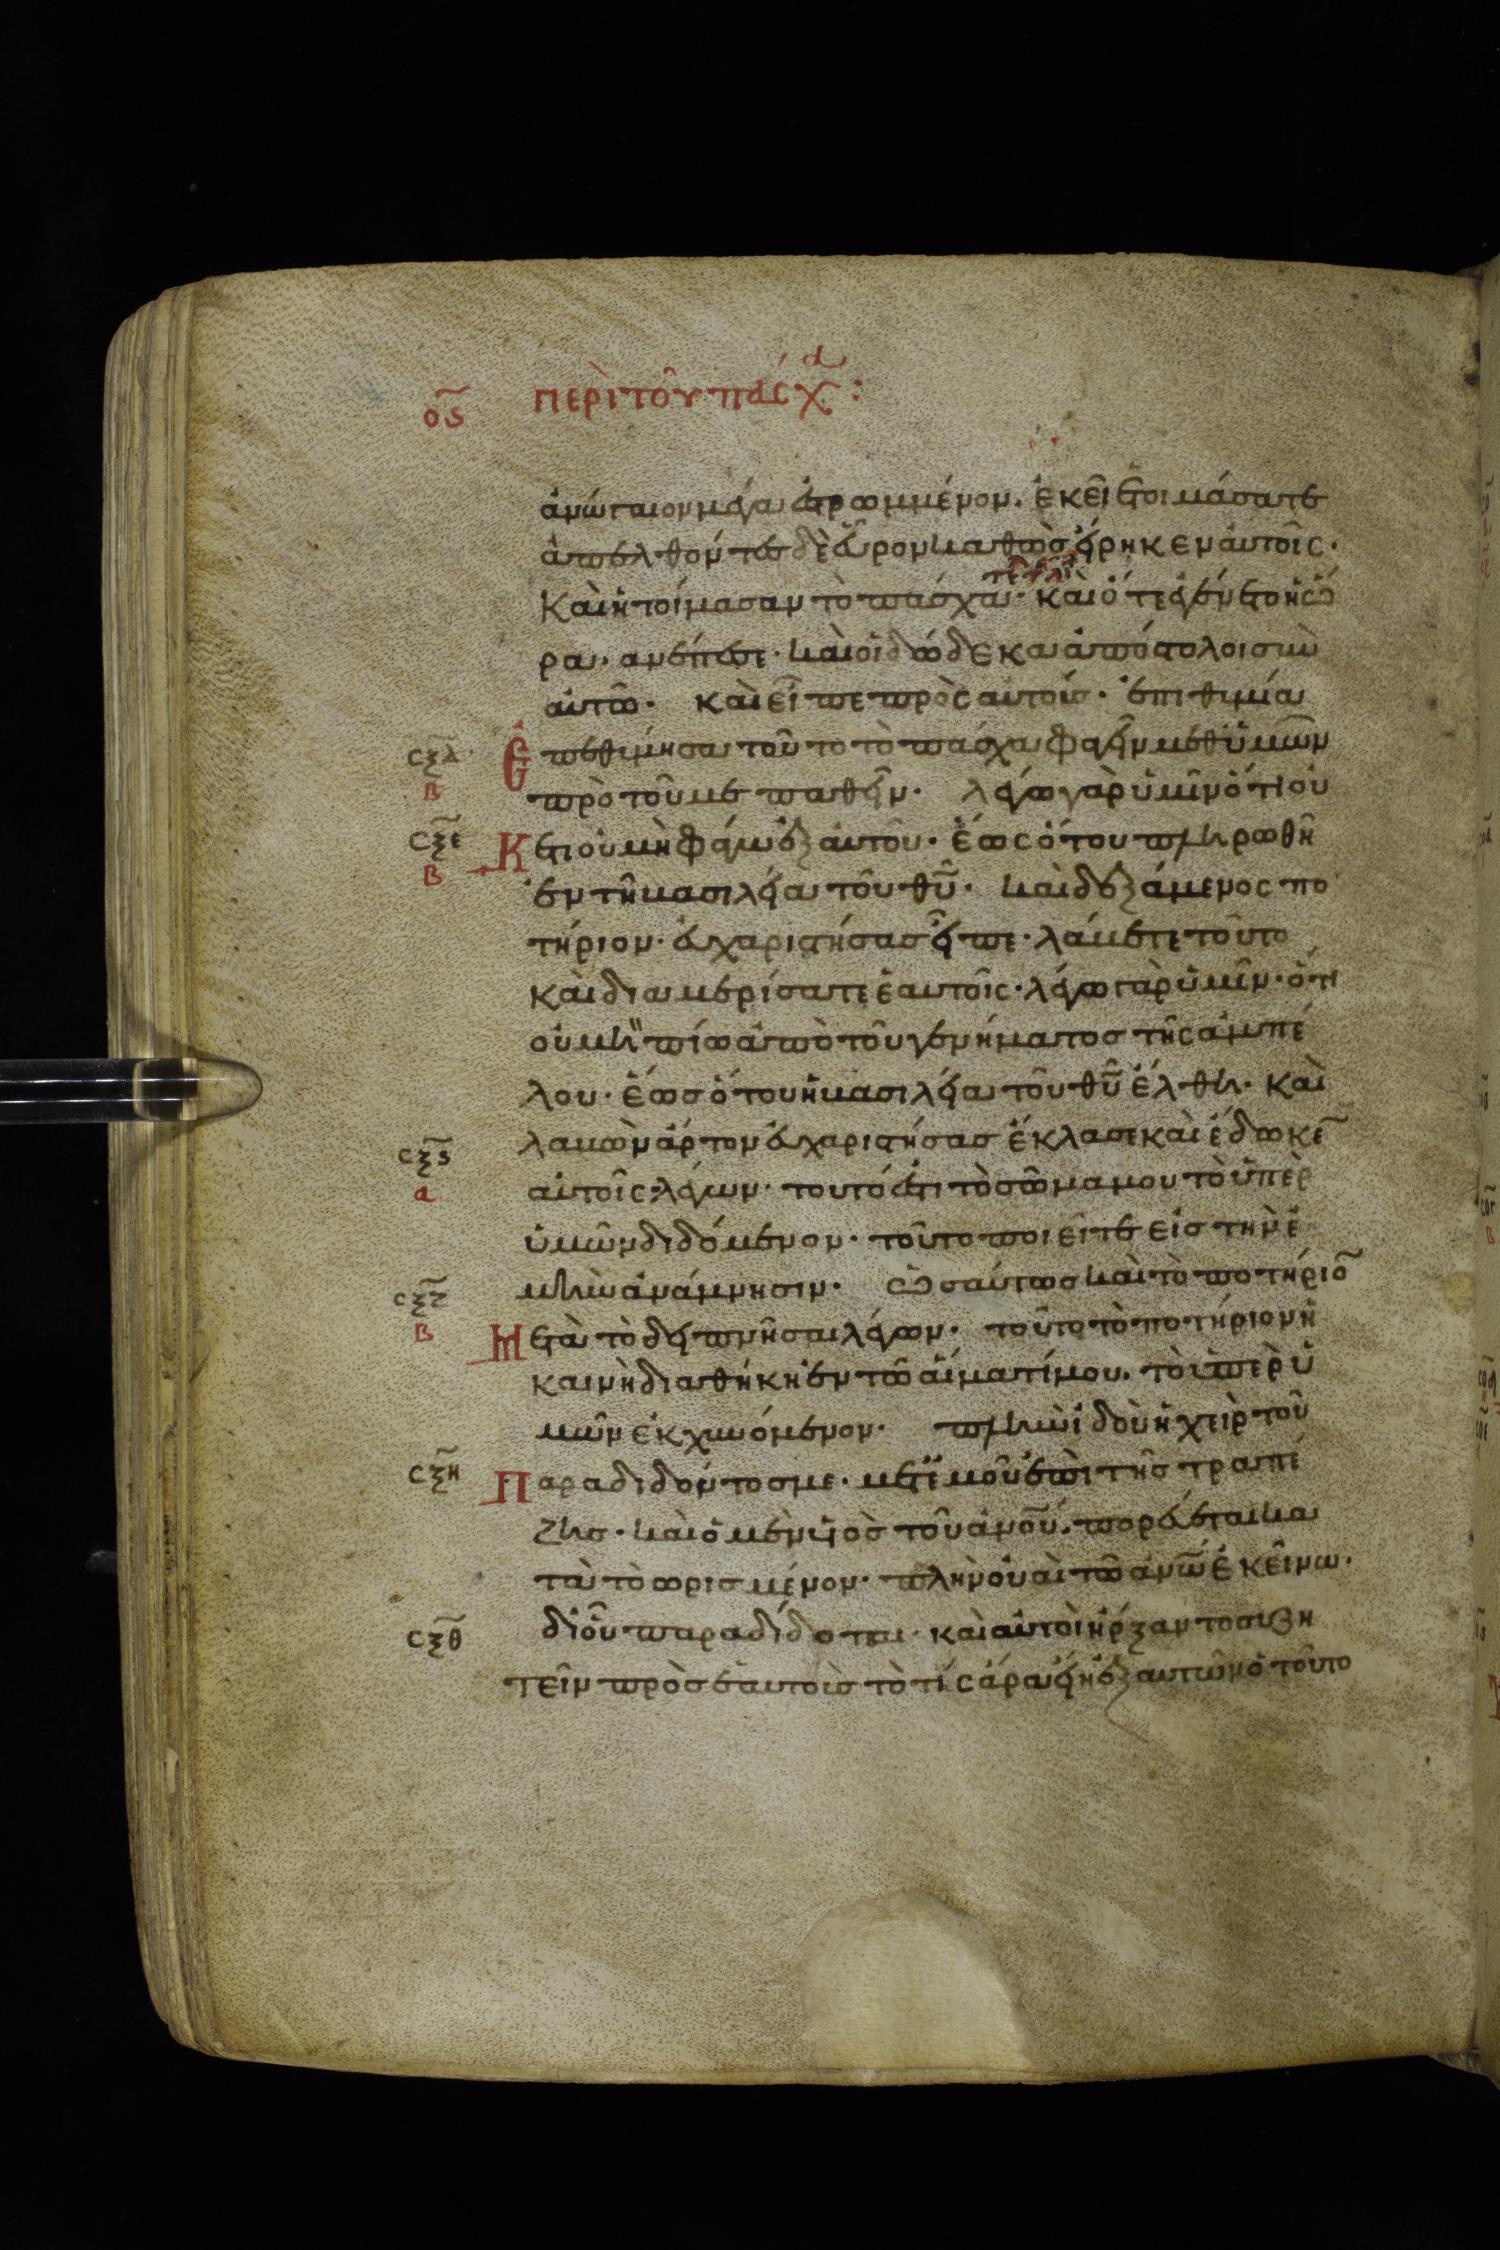 ος περὶ τοῦ πάσχα :
ἀνώγαιον μέγα ἐστρωμμένον. ἐκεῖ ἑτοιμάσατε
ἀπελθόντες δὲ εὗρον καθὼς εἴρηκεν αὐτοῖς·
Καὶ ἡτοίμασαν τὸ πάσχα· καὶ ὅτε ἐγένετο ἡ ὥ
ρα· ἀνέπεσε· καὶ οἱ δώδεκα ἀπόστολοι σὺν
αὐτῶ· καὶ εἶπε πρὸς αὐτούς· ἐπιθυμία
σξδ Ἐπεθύμησα τοῦτο τὸ πάσχα φαγεῖν μεθ ὑμῶν
β πρὸ τοῦ με παθεῖν· λέγω γὰρ ὑμῖν ὅτι οὐ
σξε Κετι οὐ μὴ φάγω ἐξ αὐτοῦ· ἕως ὅτου πληρωθῆ
β ἐν τῆ βασιλεία τοῦ θυ· καὶ δεξάμενος πο
τήριον· εὐχαριστήσας εἶπε· λάβετε τοῦτο
καὶ διαμερίσατε ἑαυτοῖς· λέγω γὰρ ὑμῖν· ὅτι
οὐ μὴ πίω ἀπὸ τοῦ γενήματος τῆς ἀμπέ
λου· ἕως ὅτου ἡ βασιλεία τοῦ θυ ἔλθη· καὶ
σξς λαβὼν ἄρτον εὐχαριστήσας ἔκλασε καὶ ἔδωκε
α αὐτοῖς· λέγων· τουτό ἐστι τὸ σῶμα μου τὸ ὑπὲρ
ὑμῶν διδόμενον· τοῦτο ποιεῖτε εἰς τὴν ἐ
σξζ μὴν ἀνάμνησιν· ὡσαύτως καὶ τὸ ποτήριο
β Μετὰ τὸ δειπνῆσαι λέγων· τοῦτο τὸ ποτήριον ἡ
καινὴ διαθήκη ἐν τῶ αἵματί μου. τὸ ὑπὲρ ὑ
μῶν ἐκχυνόμενον· πλὴν ἰδοὺ ἡ χεὶρ τοῦ
σξη Παραδιδόντος με· μετ ἐμοῦ ἐπὶ τῆς τραπέ
ζης· καὶ ὁ μὲν υἱὸς τοῦ ἀνου. πορεύεται κα
τὰ τὸ ὡρισμένον· πλὴν οὐαὶ τῶ ἀνω ἐκείνω·
σξθ δι οὗ παραδίδοται· καὶ αὐτοὶ ἤρξαντο συζη
τεῖν πρὸς ἑαυτοὺς τὸ τίς ἄρα εἴη ἐξ αὐτῶν ὁ τοῦτο